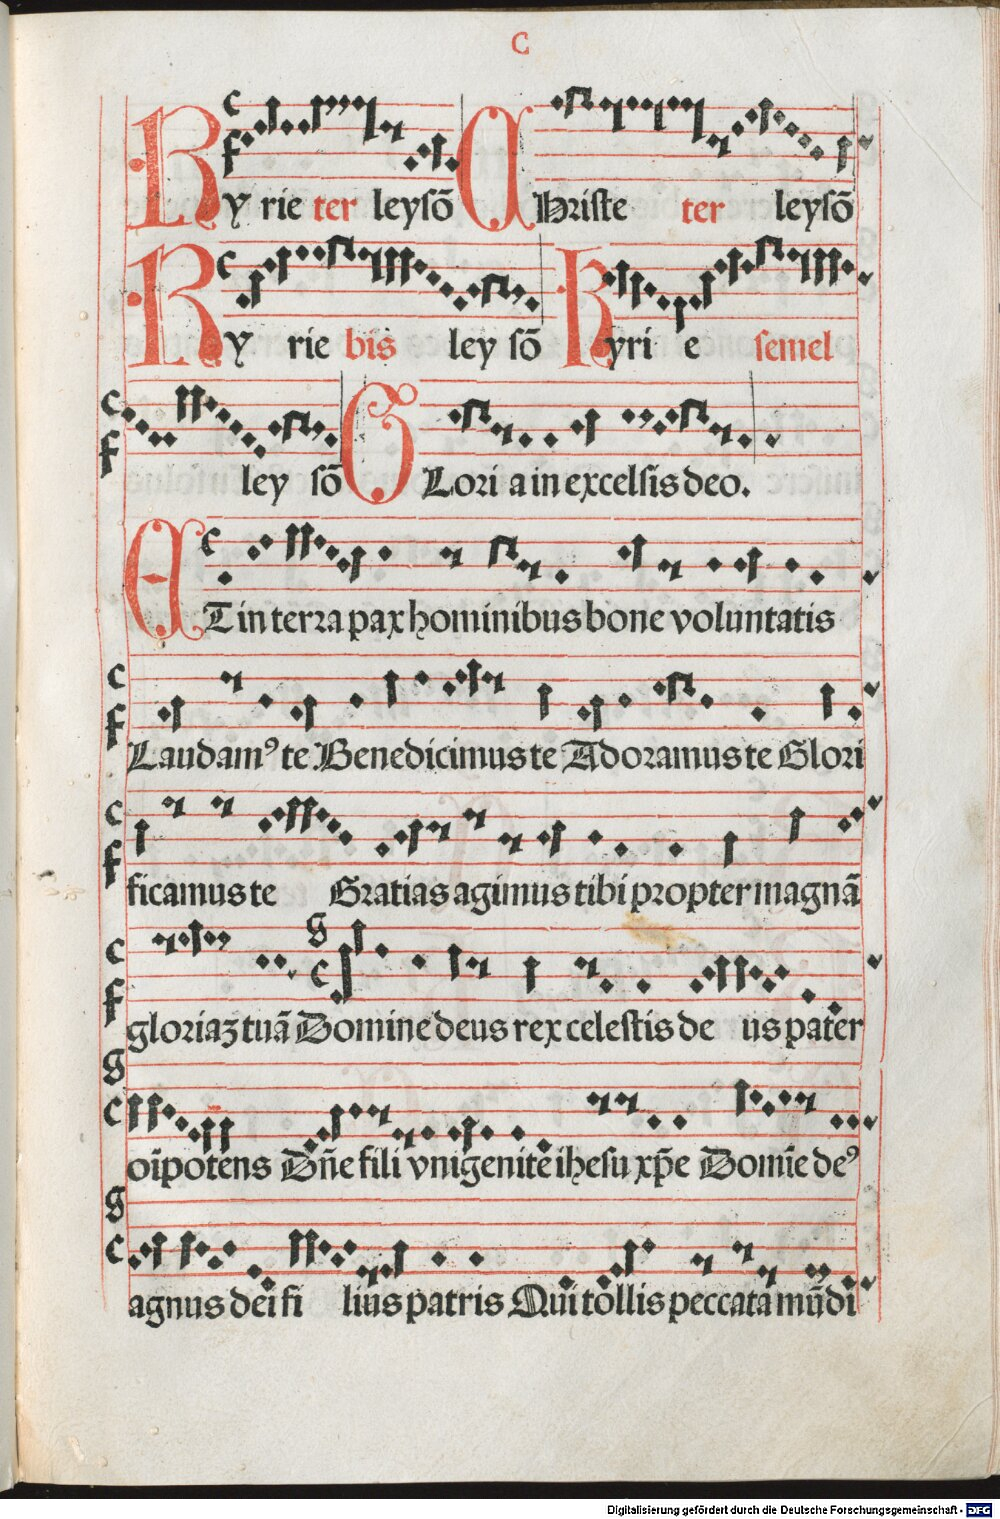 C
Kyrie ter leysō Christe ter leysō
Kyrie bis leysō Kyrie semel
leysō Gloria in excelsis deo.
Et in terra pax hominibus bone voluntatis
Laudamꝰ te Benedicimus te Adoramus te Glori
ficamus te Gratias agimus tibi propter magnā
gloriaꝫ tuā Domine deus rex celestis deus pater
oīpotens Dn̄e fili vnigenite ihesu xp̄e Domīe deꝰ
agnus dei filius patris Qui tollis peccata mūdi
Digitalisierung gefördert durch die Deutsche Forschungsgemeinschaft - DFG